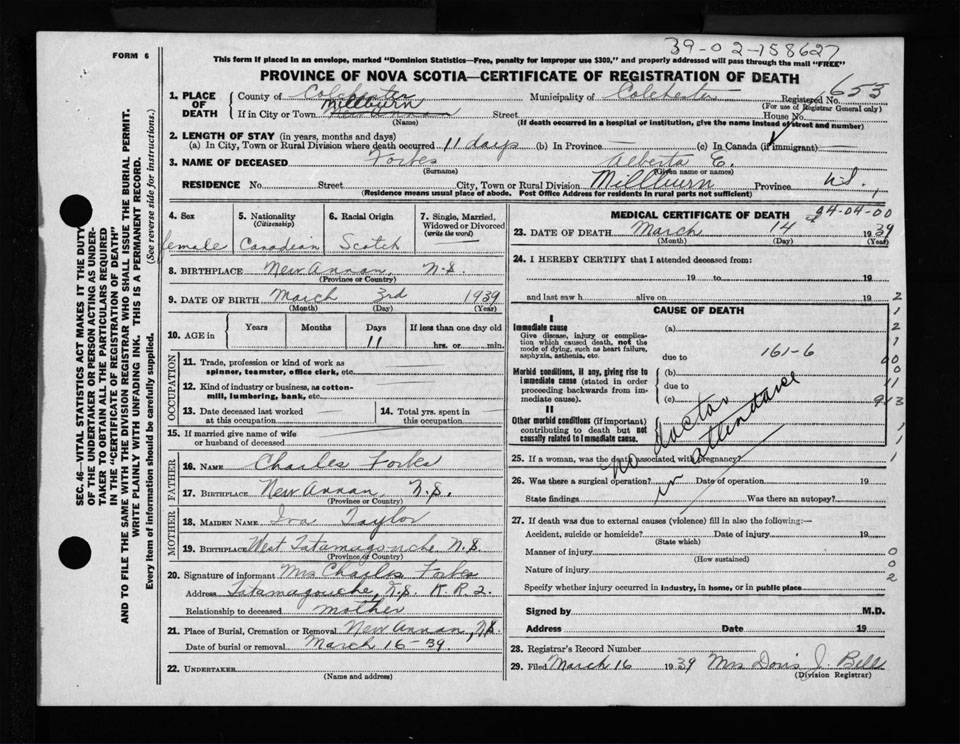 39-02-158627
FORM 6
This form if placed in an envelope, marked "Dominion Statistics—Free, penalty for improper use $300," and properly addressed will pass through the mail "FREE"
PROVINCE OF NOVA SCOTIA—CERTIFICATE OF REGISTRATION OF DEATH
SEC. 46—VITAL STATISTICS ACT MAKES IT THE DUTY
OF THE UNDERTAKER OR PERSON ACTING AS UNDER-
TAKER TO OBTAIN ALL THE PARTICULARS REQUIRED
IN THE "CERTIFICATE OF REGISTRATION OF DEATH"
AND TO FILE THE SAME WITH THE DIVISION REGISTRAR WHO SHALL ISSUE THE BURIAL PERMIT.
WRITE PLAINLY WITH UNFADING INK. THIS IS A PERMANENT RECORD.
Every item of information should be carefully supplied. (See reverse side for instructions.)
1. PLACE OF DEATH County of Colchester Municipality of Colchester Registered No. 653
(For use of Registrar General only)
If in City or Town Millburn New Annan Street House No.
(Name) (If death occurred in a hospital or institution, give the name instead of street and number)
2. LENGTH OF STAY (in years, months and days)
(a) In City, Town or Rural Division where death occurred 11 days (b) In Province — (c) In Canada (if immigrant) —
3. NAME OF DECEASED Forbes Alberta E.
(Surname) (Given name or names)
RESIDENCE No. Street City, Town or Rural Division Millburn Province N.S.
(Residence means usual place of abode. Post Office Address for residents in rural parts not sufficient)
4. Sex 5. Nationality (Citizenship) 6. Racial Origin 7. Single, Married, Widowed or Divorced (write the word)
female Canadian Scotch
8. BIRTHPLACE New Annan, N.S.
(Province or Country)
9. DATE OF BIRTH March 3rd 1939
(Month) (Day) (Year)
10. AGE in Years Months Days If less than one day old
11 hrs. or min.
OCCUPATION
11. Trade, profession or kind of work as
spinner, teamster, office clerk, etc.
12. Kind of industry or business, as cotton-
mill, lumbering, bank, etc.
13. Date deceased last worked at this occupation 14. Total yrs. spent in this occupation
15. If married give name of wife
or husband of deceased
FATHER
16. NAME Charles Forbes
17. BIRTHPLACE New Annan N.S.
(Province or Country)
MOTHER
18. MAIDEN NAME Iva Taylor
19. BIRTHPLACE West Tatamagouche N.S.
(Province or Country)
20. Signature of informant Mrs Charles Forbes
Address Tatamagouche, N.S. R.R. 2.
Relationship to deceased mother
21. Place of Burial, Cremation or Removal New Annan, N.S.
Date of burial or removal March 16-39
22. UNDERTAKER
(Name and address)
MEDICAL CERTIFICATE OF DEATH
24-04-00
23. DATE OF DEATH March 14 1939
(Month) (Day) (Year)
24. I HEREBY CERTIFY that I attended deceased from:
19 to 19
and last saw h alive on 19
CAUSE OF DEATH
I
Immediate cause (a)
Give disease, injury or complica-
tion which caused death, not the
mode of dying, such as heart failure,
asphyxia, asthenia, etc. due to 161-6
Morbid conditions, if any, giving rise to
immediate cause (stated in order (b)
proceeding backwards from im- due to
mediate cause). (c)
II
Other morbid conditions (if important)
contributing to death but not
causally related to immediate cause.
no doctor
in attendance
25. If a woman, was the death associated with pregnancy?
26. Was there a surgical operation? Date of operation 19
State findings Was there an autopsy?
27. If death was due to external causes (violence) fill in also the following:—
Accident, suicide or homicide? Date of injury 19
(State which)
Manner of injury
(How sustained)
Nature of injury
Specify whether injury occurred in industry, in home, or in public place
Signed by M.D.
Address Date 19
28. Registrar's Record Number
29. Filed March 16 1939 Mrs Doris J. Bell
(Division Registrar)